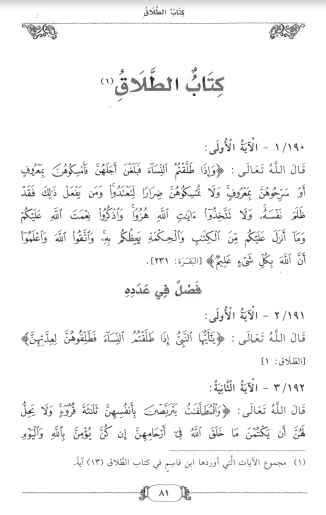 كِتَابُ الطَّلَاقُ
كِتَابُ الطَّلَاقُ (١)
١/١٩٠ - الْآيَةُ الْأُولَى:
قَالَ اللَّهُ تَعَالَى: ﴿وَإِذَا طَلَّقْتُمُ ٱلنِّسَآءَ فَبَلَغْنَ أَجَلَهُنَّ فَأَمْسِكُوهُنَّ بِمَعْرُوفٍ
أَوْ سَرِّحُوهُنَّ بِمَعْرُوفٍ وَلَا تُمْسِكُوهُنَّ ضِرَارًا لِّتَعْتَدُوا۟ وَمَن يَفْعَلْ ذَٰلِكَ فَقَدْ
ظَلَمَ نَفْسَهُۥ وَلَا تَتَّخِذُوٓا۟ ءَايَٰتِ ٱللَّهِ هُزُوًا وَٱذْكُرُوا۟ نِعْمَتَ ٱللَّهِ عَلَيْكُمْ
وَمَآ أَنزَلَ عَلَيْكُم مِّنَ ٱلْكِتَٰبِ وَٱلْحِكْمَةِ يَعِظُكُم بِهِۦ وَٱتَّقُوا۟ ٱللَّهَ وَٱعْلَمُوٓا۟
أَنَّ ٱللَّهَ بِكُلِّ شَىْءٍ عَلِيمٌ﴾ [البَقَرَة: ٢٣١].
فَصْلٌ فِي عَدَدِهِ
٢/١٩١ - الْآيَةُ الْأُولَى:
قَالَ اللَّهُ تَعَالَى: ﴿يَٰٓأَيُّهَا ٱلنَّبِىُّ إِذَا طَلَّقْتُمُ ٱلنِّسَآءَ فَطَلِّقُوهُنَّ لِعِدَّتِهِنَّ﴾
[الطّلَاق: ١]
٣/١٩٢ - الْآيَةُ الثَّانِيَةُ:
قَالَ اللَّهُ تَعَالَى: ﴿وَٱلْمُطَلَّقَٰتُ يَتَرَبَّصْنَ بِأَنفُسِهِنَّ ثَلَٰثَةَ قُرُوٓءٍ وَلَا يَحِلُّ
لَهُنَّ أَن يَكْتُمْنَ مَا خَلَقَ ٱللَّهُ فِىٓ أَرْحَامِهِنَّ إِن كُنَّ يُؤْمِنَّ بِٱللَّهِ وَٱلْيَوْمِ
(١) مجموع الآيات الَّتي أوردها ابن قاسِم في كتاب الطَّلاق (١٣) آية.
٨١